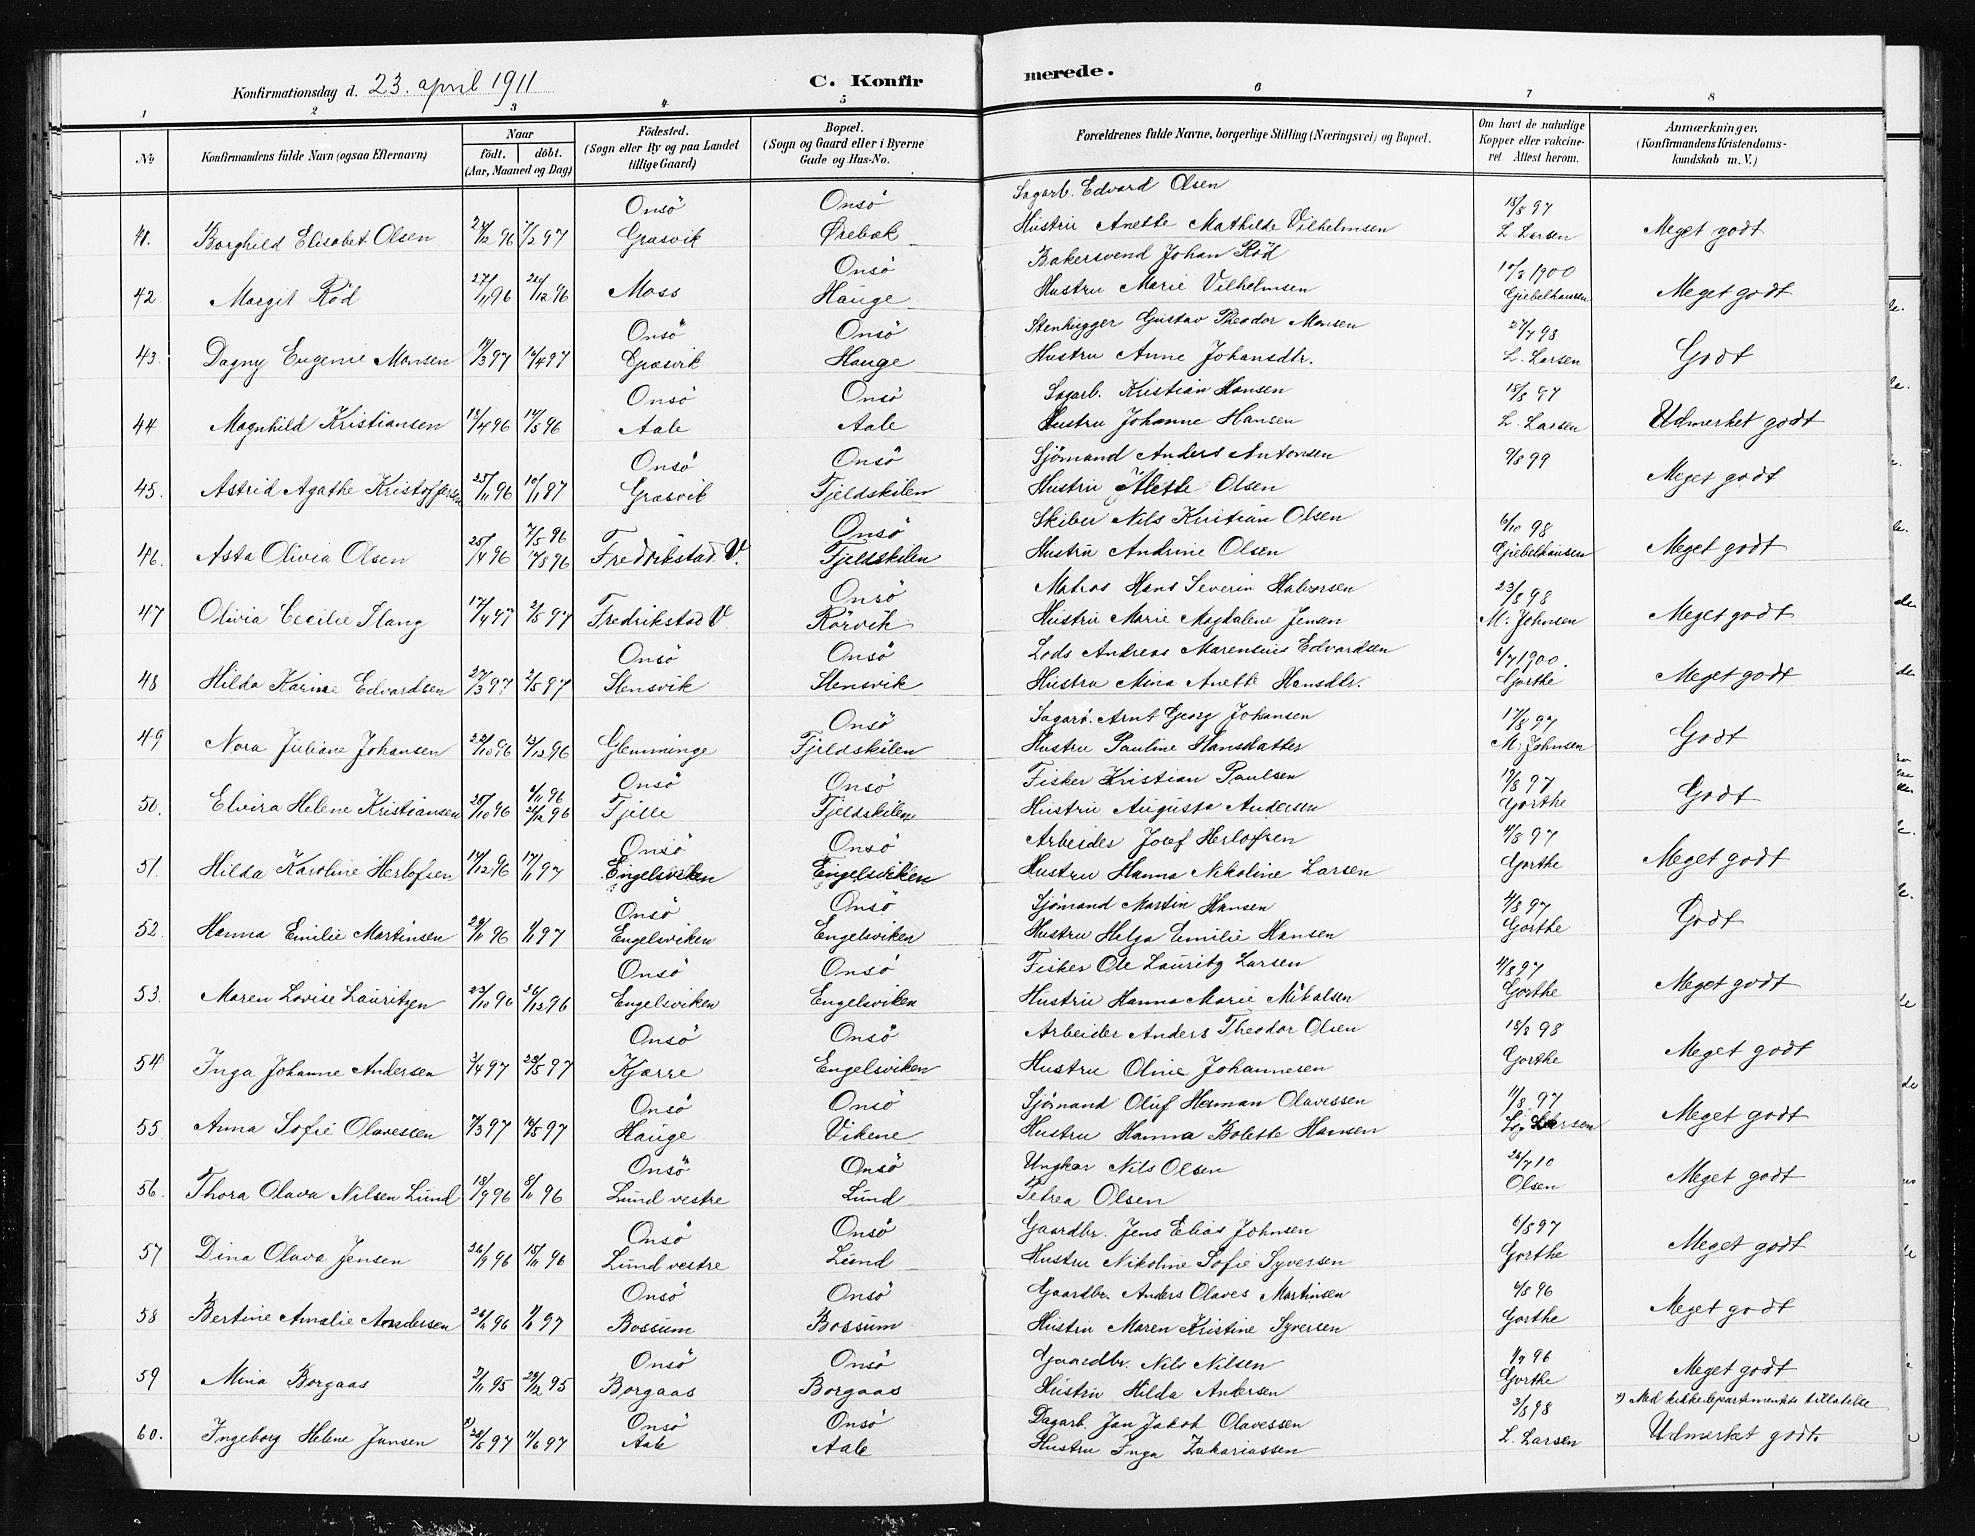 Konfirmationsdag d. 23. april 1911
C. Konfir merede.
1 2 3 4 5 6 7 8
No
Konfirmandens fulde Navn (ogsaa Efternavn)
Naar
födt. döbt.
(Aar, Maaned og Dag)
Födested.
(Sogn eller By og paa Landet
tillige Gaard)
Bopæl.
(Sogn og Gaard eller i Byerne
Gade og Hus-No.
Forældrenes fulde Navne, borgerlige Stilling (Næringsvei) og Bopæl.
Om havt de naturlige
Kopper eller vakcine-
ret Attest herom.
Anmærkninger.
(Konfirmandens Kristendoms-
kundskab m. V.)
Onsö Onsö Sagarb. Edvard Olsen 18/8 97
41. Borghild Elisabet Olsen 24/12 96 7/2 97 Græsvik Ørebæk Hustru Anette Mathilde Vilhelmsen L. Larsen Meget godt
Onsö Bakersvend Johan Röd 10/3 1900
42 Margit Röd 27/11 96 26/12 96 Moss Hauge Hustru Marie Vilhelmsen Giebelhausen Meget godt
Onsö Onsö Stenhugger Gustav Theodor Monsen 27/7 98
43. Dagny Eugenie Monsen 14/3 97 12/4 97 Græsvik Hauge Hustru Anne Johansdtr. L. Larsen Godt
Onsö Onsö Sagarb. Kristian Hansen 18/8 97
44 Magnhild Kristiansen 13/4 96 14/5 96 Aale Aale Hustru Johanne Hansen L. Larsen Udmerket godt
Onsö Onsö Sjömand Anders Antonsen 9/8 99
45. Astrid Agathe Kristoffersen 25/11 96 10/1 87 Græsvik Fjeldskilen Hustru Alette Olsen Meget godt
7/5 96 Onsö Skiber Nils Kristian Olsen 6/10 98
46. Asta Olivia Olsen 25/4 96 17/8 96 Fredrikstad V. Fjeldskilen Hustru Andrine Olsen Giebelhausen Meget godt
Onsö Matros Hans Severin Halvorsen 23/8 98
47 Olivia Cecilie Stang 17/4 97 2/5 97 Fredrikstad V. Rörvik Hustru Marie Magdalene Jensen M. Johnsen Meget godt
Onsö Onsö Lods Andreas Marensius Edvardsen 6/7 1900.
48 Hilda Karine Edvardsen 27/3 97 2/5 97 Slensvik Slensvik Hustru Mina Anette Hansdtr. Gorthe Meget godt
Onsö Sagarb. Arnt Georg Johansen 17/8 97
49 Nora Juliane Johansen 22/10 96 13/12 96 Glemminge Fjeldskilen Hustru Pauline Hansdatter M. Johnsen Godt
4/11 96 Onsö Onsö Fisker Kristian Paulsen 19/8 97
50. Elvira Helene Kristiansen 25/10 96 26/12 96 Fjille Fjeldskilen Hustru Augusta Andersen Gorthe Godt
Onsö Onsö Arbeider Josef Herlofsen 4/8 97
51. Hilda Karoline Herlofsen 14/12 96 17/1 97 Engelsviken Engelsviken Hustru Hanna Nikoline Larsen Gorthe Meget godt
Onsö Onsö Sjömand Martin Hansen 4/8 97
52. Hanna Emilie Martinsen 29/11 96 1/1 97 Engelsviken Engelsviken Hustru Helga Emilie Hansen Gorthe Godt
Onsö Onsö Fisker Ole Lauritz Larsen 4/8 97
53. Maren Lovise Lauritzen 23/10 96 26/12 96 Engelsviken Engelsviken Hustru Hanna Marie Mikalsen Gorthe Meget godt
Onsö Onsö Arbeider Anders Theodor Olsen 18/8 98
54 Inga Johanne Andersen 3/4 97 23/5 97 Kjærre Engelsviken Hustru Oline Johannesen Gorthe Meget godt
Onsö Onsö Sjömand Oluf Herman Olavessen 11/8 97
55. Anna Sofie Olavessen 7/3 97 16/5 97 Hauge Vikene Hustru Hanna Bolette Hansen Larsen Meget godt
Onsö Onsö Ungkar Nils Olsen 26/7 10
56. Thora Olava Nilsen Lund 18/9 96 8/11 96 Lund vestre Lund Petrea Olsen Olsen Meget godt
Onsö Onsö Gaardbr. Jens Elias Johnsen 6/8 97
57 Dina Olava Jensen 26/9 96 15/11 96 Lund vestre Lund Hustru Nikoline Sofie Syversen Gorthe Meget godt
Onsö Onsö Gaardbr. Anders Olaves Martinsen 6/8 96
58 Bertine Amalie Andersen 97 Bossum Bossum Hustru Maren Kristine Syversen Gorthe Meget godt
Onsö Onsö Gaardbr. Nils Nilsen 96
59 Mina Borgaas 3/11 95 29/12 95 Borgaas Borgaas Hustru Hilda Andersen Gorthe Meget godt
Onsö Onsö Dagarb. Jan Jakob Olavessen 3/8 98 *) Med kirkedepartementets tilladelse
60. Ingeborg Helene Jansen *) 25/5 97 11/6 97 Aale Aale Hustru Inga Zakariassen L. Larsen Udmerket godt.